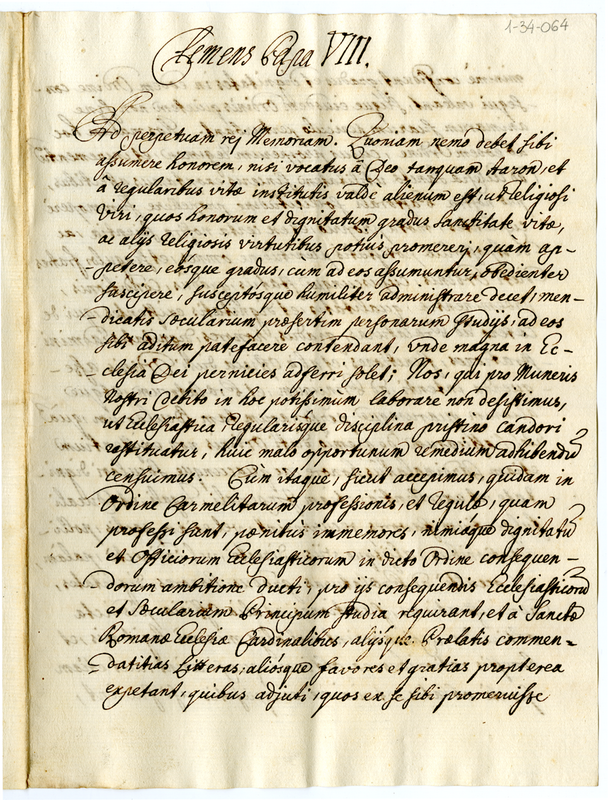 1-34-064
Clemens Papa VIII.
Ad perpetuam rej Memoriam. Quoniam nemo debet sibi
assumere honorem, nisi vocatus à Deo tanquam Aaron, et
à regularibus vitæ institutis valdè alienum est, ut religiosi
Viri, quos honorum et dignitatum gradus sanctitate vitæ,
ac alijs religiosis virtutibus potius promererj, quàm ap-
petere, eosque gradus, cùm ad eos assumuntur, obedienter
suscipere, susceptósque humiliter administrare decet, men-
-dicatis sæcularium præsertim personarum studijs, ad eos
sibi aditum patefacere contendant, unde magna in Ec-
-clesia Dei pernicies adferri solet; Nos, qui pro Muneris
Nostri debito in hoc potissimum laborare non desistimus,
ut Ecclesiastica Regularisque disciplina pristino candori
restituatur, huic malo opportunum remedium adhibendũ
censuimus. Cum itaque, sicut accepimus, quidam in
Ordine Carmelitarum professionis, et Regulæ, quam
professi sunt, pænitùs immemores, nimiaque dignitatũ
et Officiorum Ecclesiasticorum in dicto Ordine consequen-
-dorum ambitione ducti; pro ijs consequendis Ecclesiasticorũ
et Sæcularium Principum studia requirant, et à Sanctæ
Romanæ Ecclesiæ Cardinalibus, alijsque Prælatis commen-
-datitias Litteras, aliósque favores et gratias propterea
expetant, quibus adjuti, quos ex se sibi promeruisse